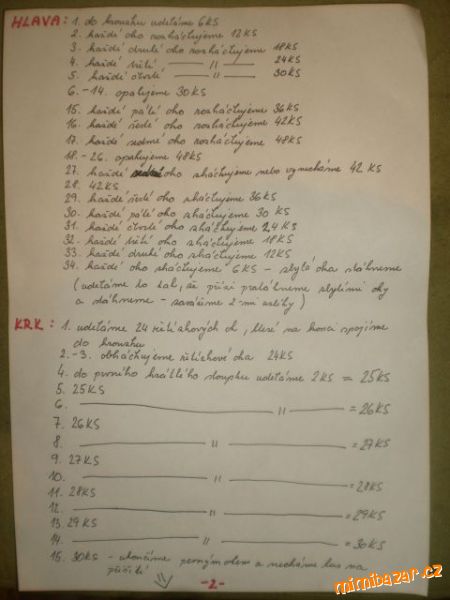 HLAVA: 1. do kroužku uděláme 6KS
2. každé oko rozháčkujeme 12KS
3. každé druhé oko rozháčkujeme 18KS
4. každé třetí —— 〃 —— 24KS
5. každé čtvrté —— 〃 —— 30KS
6.-14. opakujeme 30KS
15. každé páté oko rozháčkujeme 36KS
16. každé šesté oko rozháčkujeme 42KS
17. každé sedmé oko rozháčkujeme 48KS
18.-26. opakujeme 48KS
27. každé oko sháčkujeme nebo vynecháme 42 KS
28. 42KS
29. každé šesté oko sháčkujeme 36KS
30. každé páté oko sháčkujeme 30 KS
31. každé čtvrté oko sháčkujeme 24KS
32. každé třetí oko sháčkujeme 18KS
33. každé druhé oko sháčkujeme 12KS
34. každé oko sháčkujeme 6KS - zbylá oka stáhneme
(uděláme to tak, že přízi protáhneme zbylými oky
a stáhneme - zavážeme 2-mi uzlíky)
KRK: 1. uděláme 24 řetízkových ok, které na konci spojíme
do kroužku
2.-3. obháčkujeme řetízkové oka 24KS
4. do prvního krátkého sloupku uděláme 2KS = 25KS
5. 25KS
6. —— 〃 —— = 26KS
7. 26KS
8. —— 〃 —— = 27KS
9. 27KS
10. —— 〃 —— = 28KS
11. 28KS
12. —— 〃 —— = 29KS
13. 29KS
14. —— 〃 —— = 30KS
15. 30KS - ukončíme pevným okem a necháme kus na
přišití
-2-
mimibazar.cz